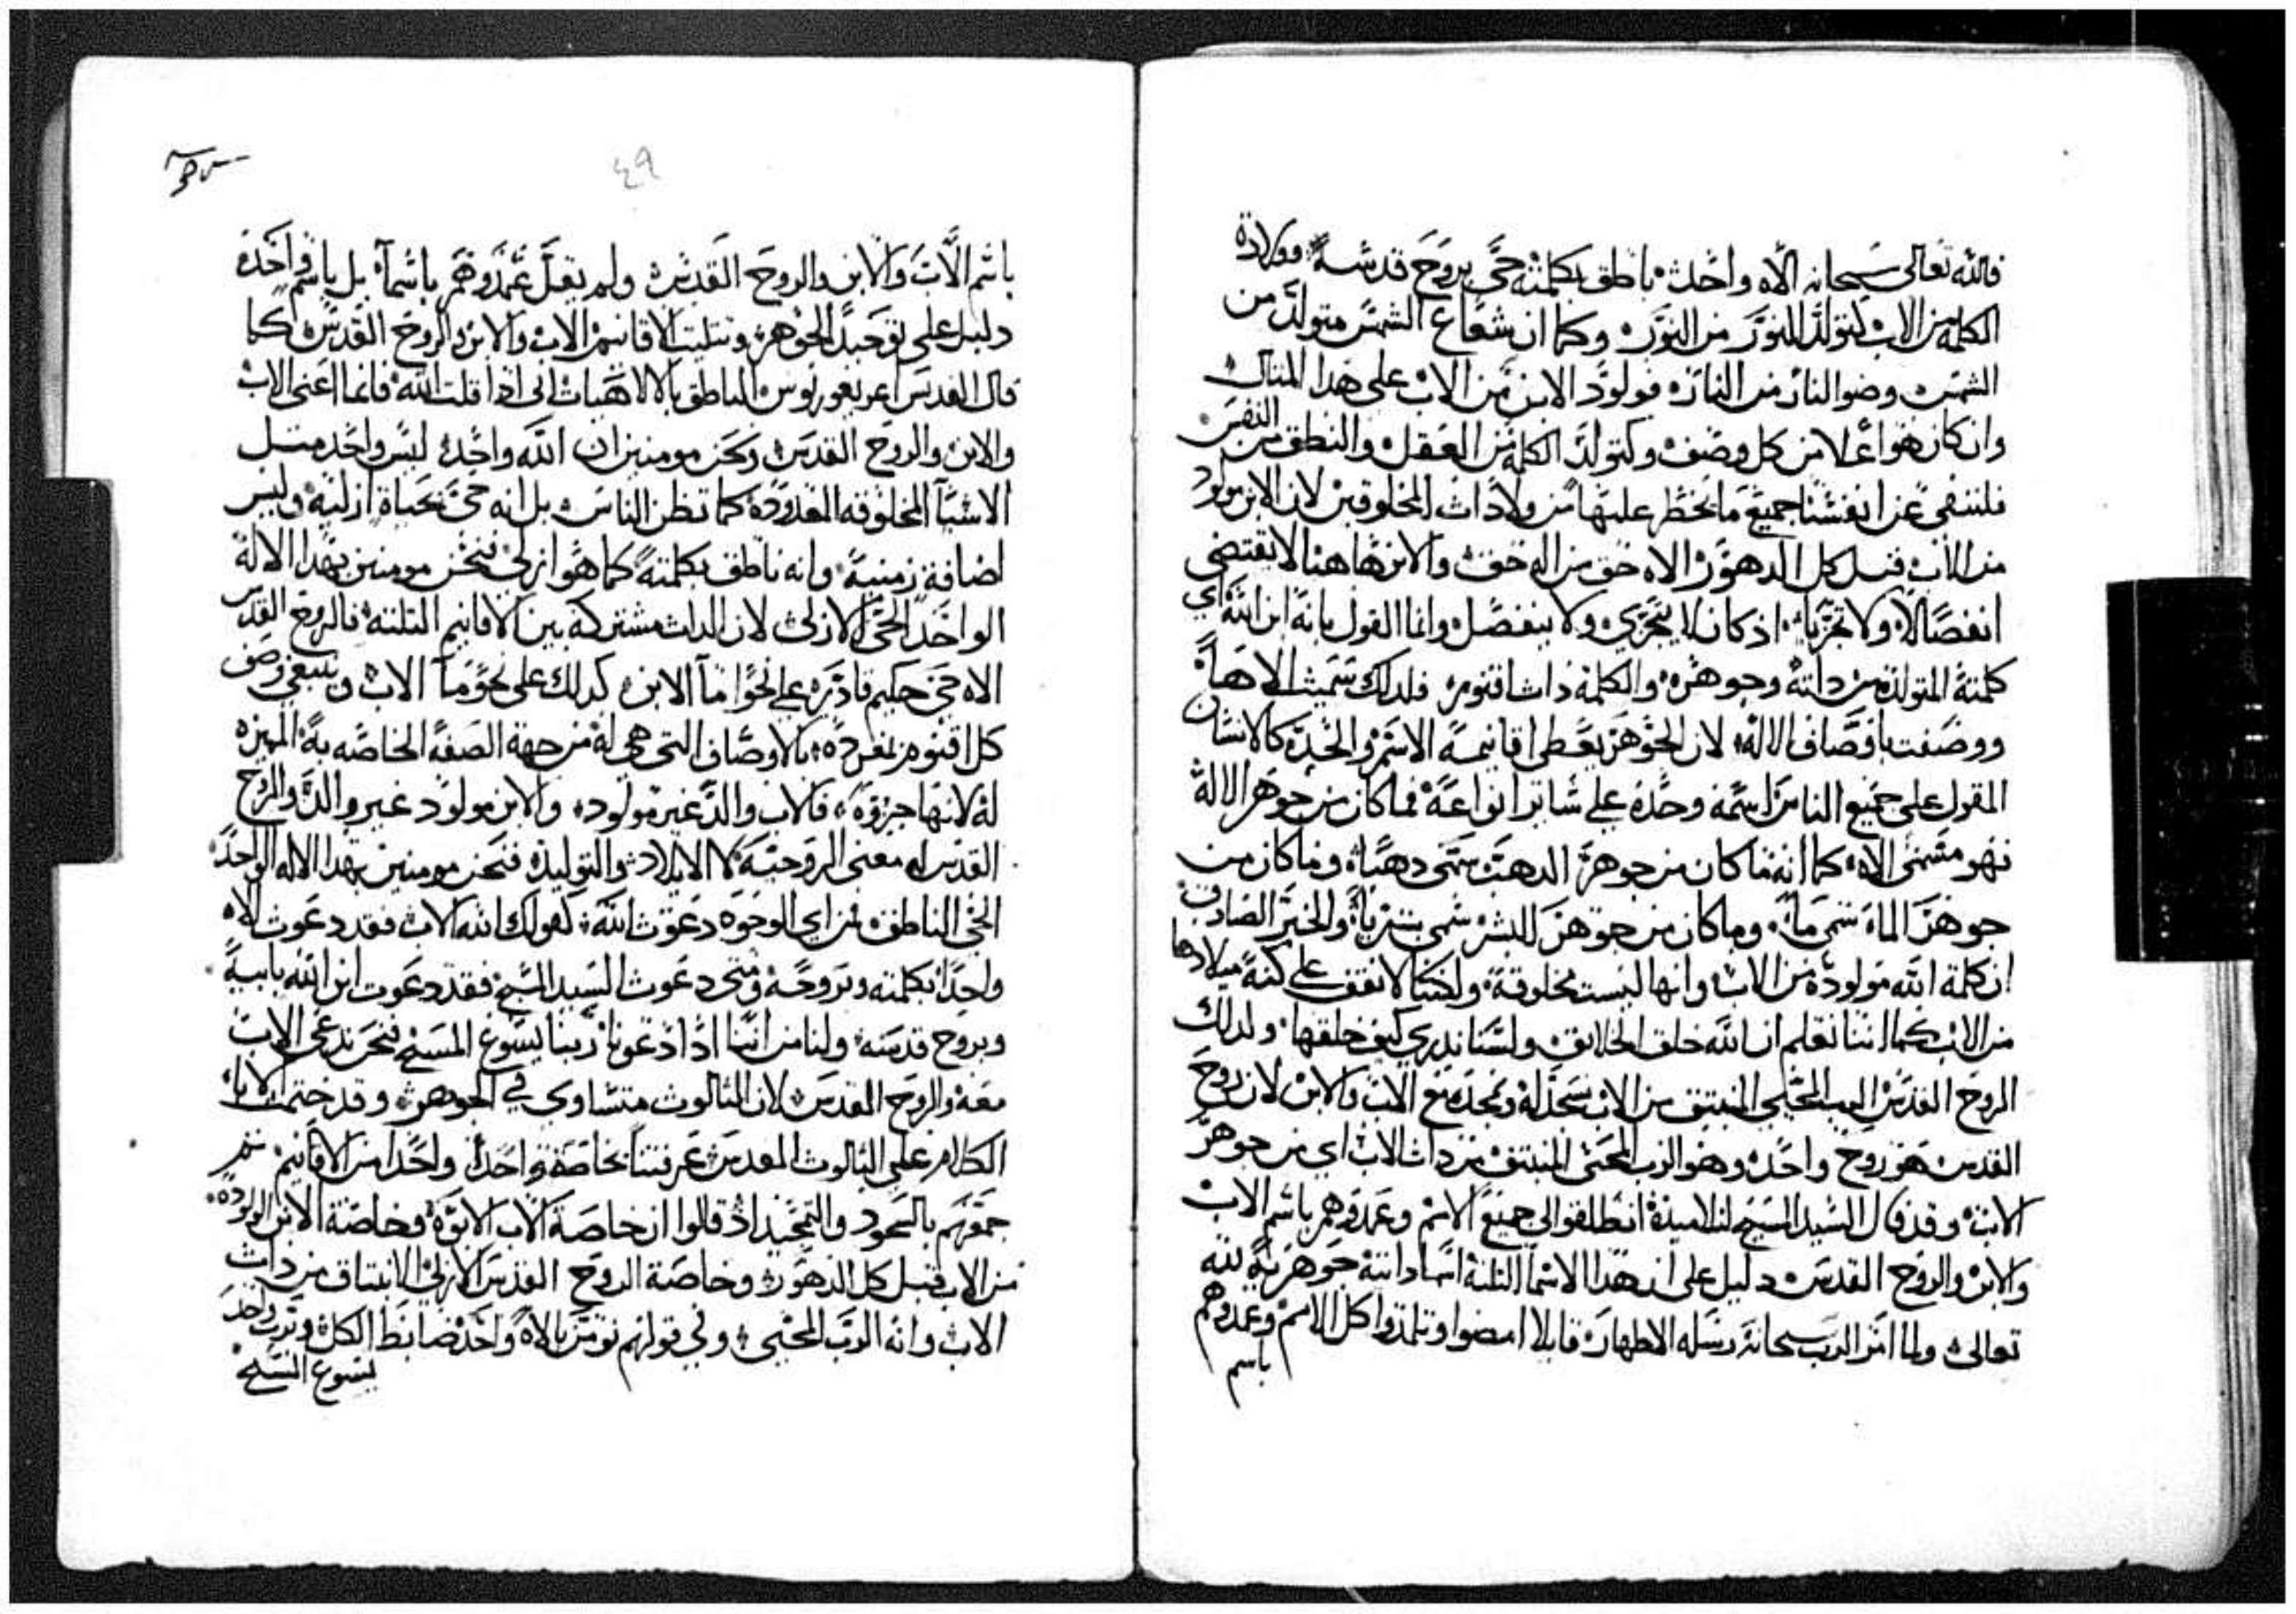 فالله تعالى سبحانه الاه واحد ناطق بكلمته حى بروح قدسه وولادة
الكلمه من الاب كتولد النور من النور وكما ان شعاع الشمس متولد من
الشمس وضو النار من النار فولود الابن من الاب على هذا المثال
وان كان هو اعلا من كل وصف وكتولد الكلمه من العقل والنطق من النفس
فلننفى عن انفسنا جميع ما يخطر عليها من ولادات المخلوقين لان الابن مولود
من الاب قبل كل الدهور الاه حق من اله حق والابن هاهنا لا يقتضى
انفصالا ولا تجزيا اذ كان لا يتجزي ولا ينفصل وانما القول بانه ابن الله اي
كلمته المتولده من داته وجوهره والكلمه ذات اقنوم فلدلك سميت الاهاً
ووصفت باوصاف الاله لان الجوهر يعطى اقانيمه الاسم والحد كالانسان
المقول على جميع الناس اسمه وحده على سائر انواعه فما كان من جوهر الاله
فهو مسمى الاه كما انه ما كان من جوهر الدهب سمى دهباً وما كان من
جوهر الماء سمى ماً وما كان من جوهر البشر سمى بشرياً والخبر الصادق
ان كلمة الله مولوده من الاب وانها ليست مخلوقة ولكننا لا نقف على كنه ميلادها
من الاب كما اننا نعلم ان الله خلق الخلايق ولسنا ندري كيف خلقها ولدلك
الروح القدس الرب المحيي المنبتق من الاب نسجد له ونمجده مع الاب والابن لان روح
القدس هو روح واحد وهو الرب المحيى المنبتق من دات الاب اي من جوهر
الابن وقد قال السيد المسيح لتلاميذه انطلقوا الى جميع الامم وعمدوهم باسم الاب
والابن والروح القدس دليل على ان هذا الاسما التلتة اسما داتية جوهرية لله
تعالى ولما امر الرب سبحانه رسله الاطهار قايلا امضوا وتلمدوا كل الامم وعمدوهم
باسم
٤٩
باسم الاب والابن والروح القدس ولم يقل عمدوهم باسماً بل باسم واحد
دليل على توحيد الجوهر وتتليت الاقانيم الاب والابن والروح القدس كما
قال القدس اغريغوريوس الناطق بالالاهيات انى اذا قلت الله فانما اعنى الاب
والابن والروح القدس ونحن مومنين ان الله واحد ليس واحد متل
الاشيا المخلوقه المعدودة كما تظن الناس بل انه حى بحياة ازلية وليس
اضافة زمنية وانه ناطق بكلمته كما هو ازلي فنحن مومنين بهذا الاله
الواحد الحى الازلى لان الدات مشتركه بين الاقانيم التلته فالروح القدس
الاه حى حكيم قادر على نحو ما الابن كدلك على نحو ما الاب وينبغي وصف
كل اقنوم بمفرده بالاوصاف التى هي له من جهة الصفة الخاصه به المميزه
له لانها فالاب والد غير مولود والابن مولود غير والد والروح
القدس له معنى الروحيه لا الايلاد والتوليد فنحن مومنين بهذا الاله الواحد
الحى الناطق من اي الوجوه دعوت الله كقولك الله الاب فقد دعوت الاه
واحداً بكلمته وبروحه ومتى دعوت السيد المسيح فقد دعوت ابن الله بابيه
وبروح قدسه ولنا من اننا اذا دعونا ربنا يسوع المسيح فنحن ندعى الاب
معه والروح القدس لان التالوت متساوي في الجوهر وقد ختمت الابا
الكلام على التالوت المقدس عرفتنا بخاصة واحداً واحداً من الاقانيم تم
بالسجود والتمجيد اذ قالوا ان خاصة الاب الابوة وخاصة الابن المولوده
من الاب قبل كل الدهور وخاصة الروح القدس الازلي الانبتاق من دات
الاب وانه الرب المحيي وفي قولهم نومن بالاه واحد ضابط الكل وبرب واحد
يسوع المسيح